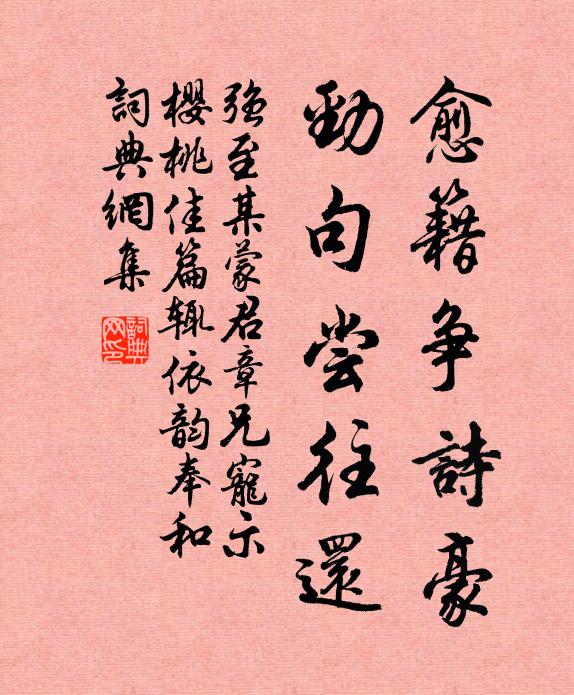 愈籍争詩豪
勁句尝往還
強至某蒙君章兄寵示
櫻桃佳篇辄依韵奉和
詞典網集
詞典网印